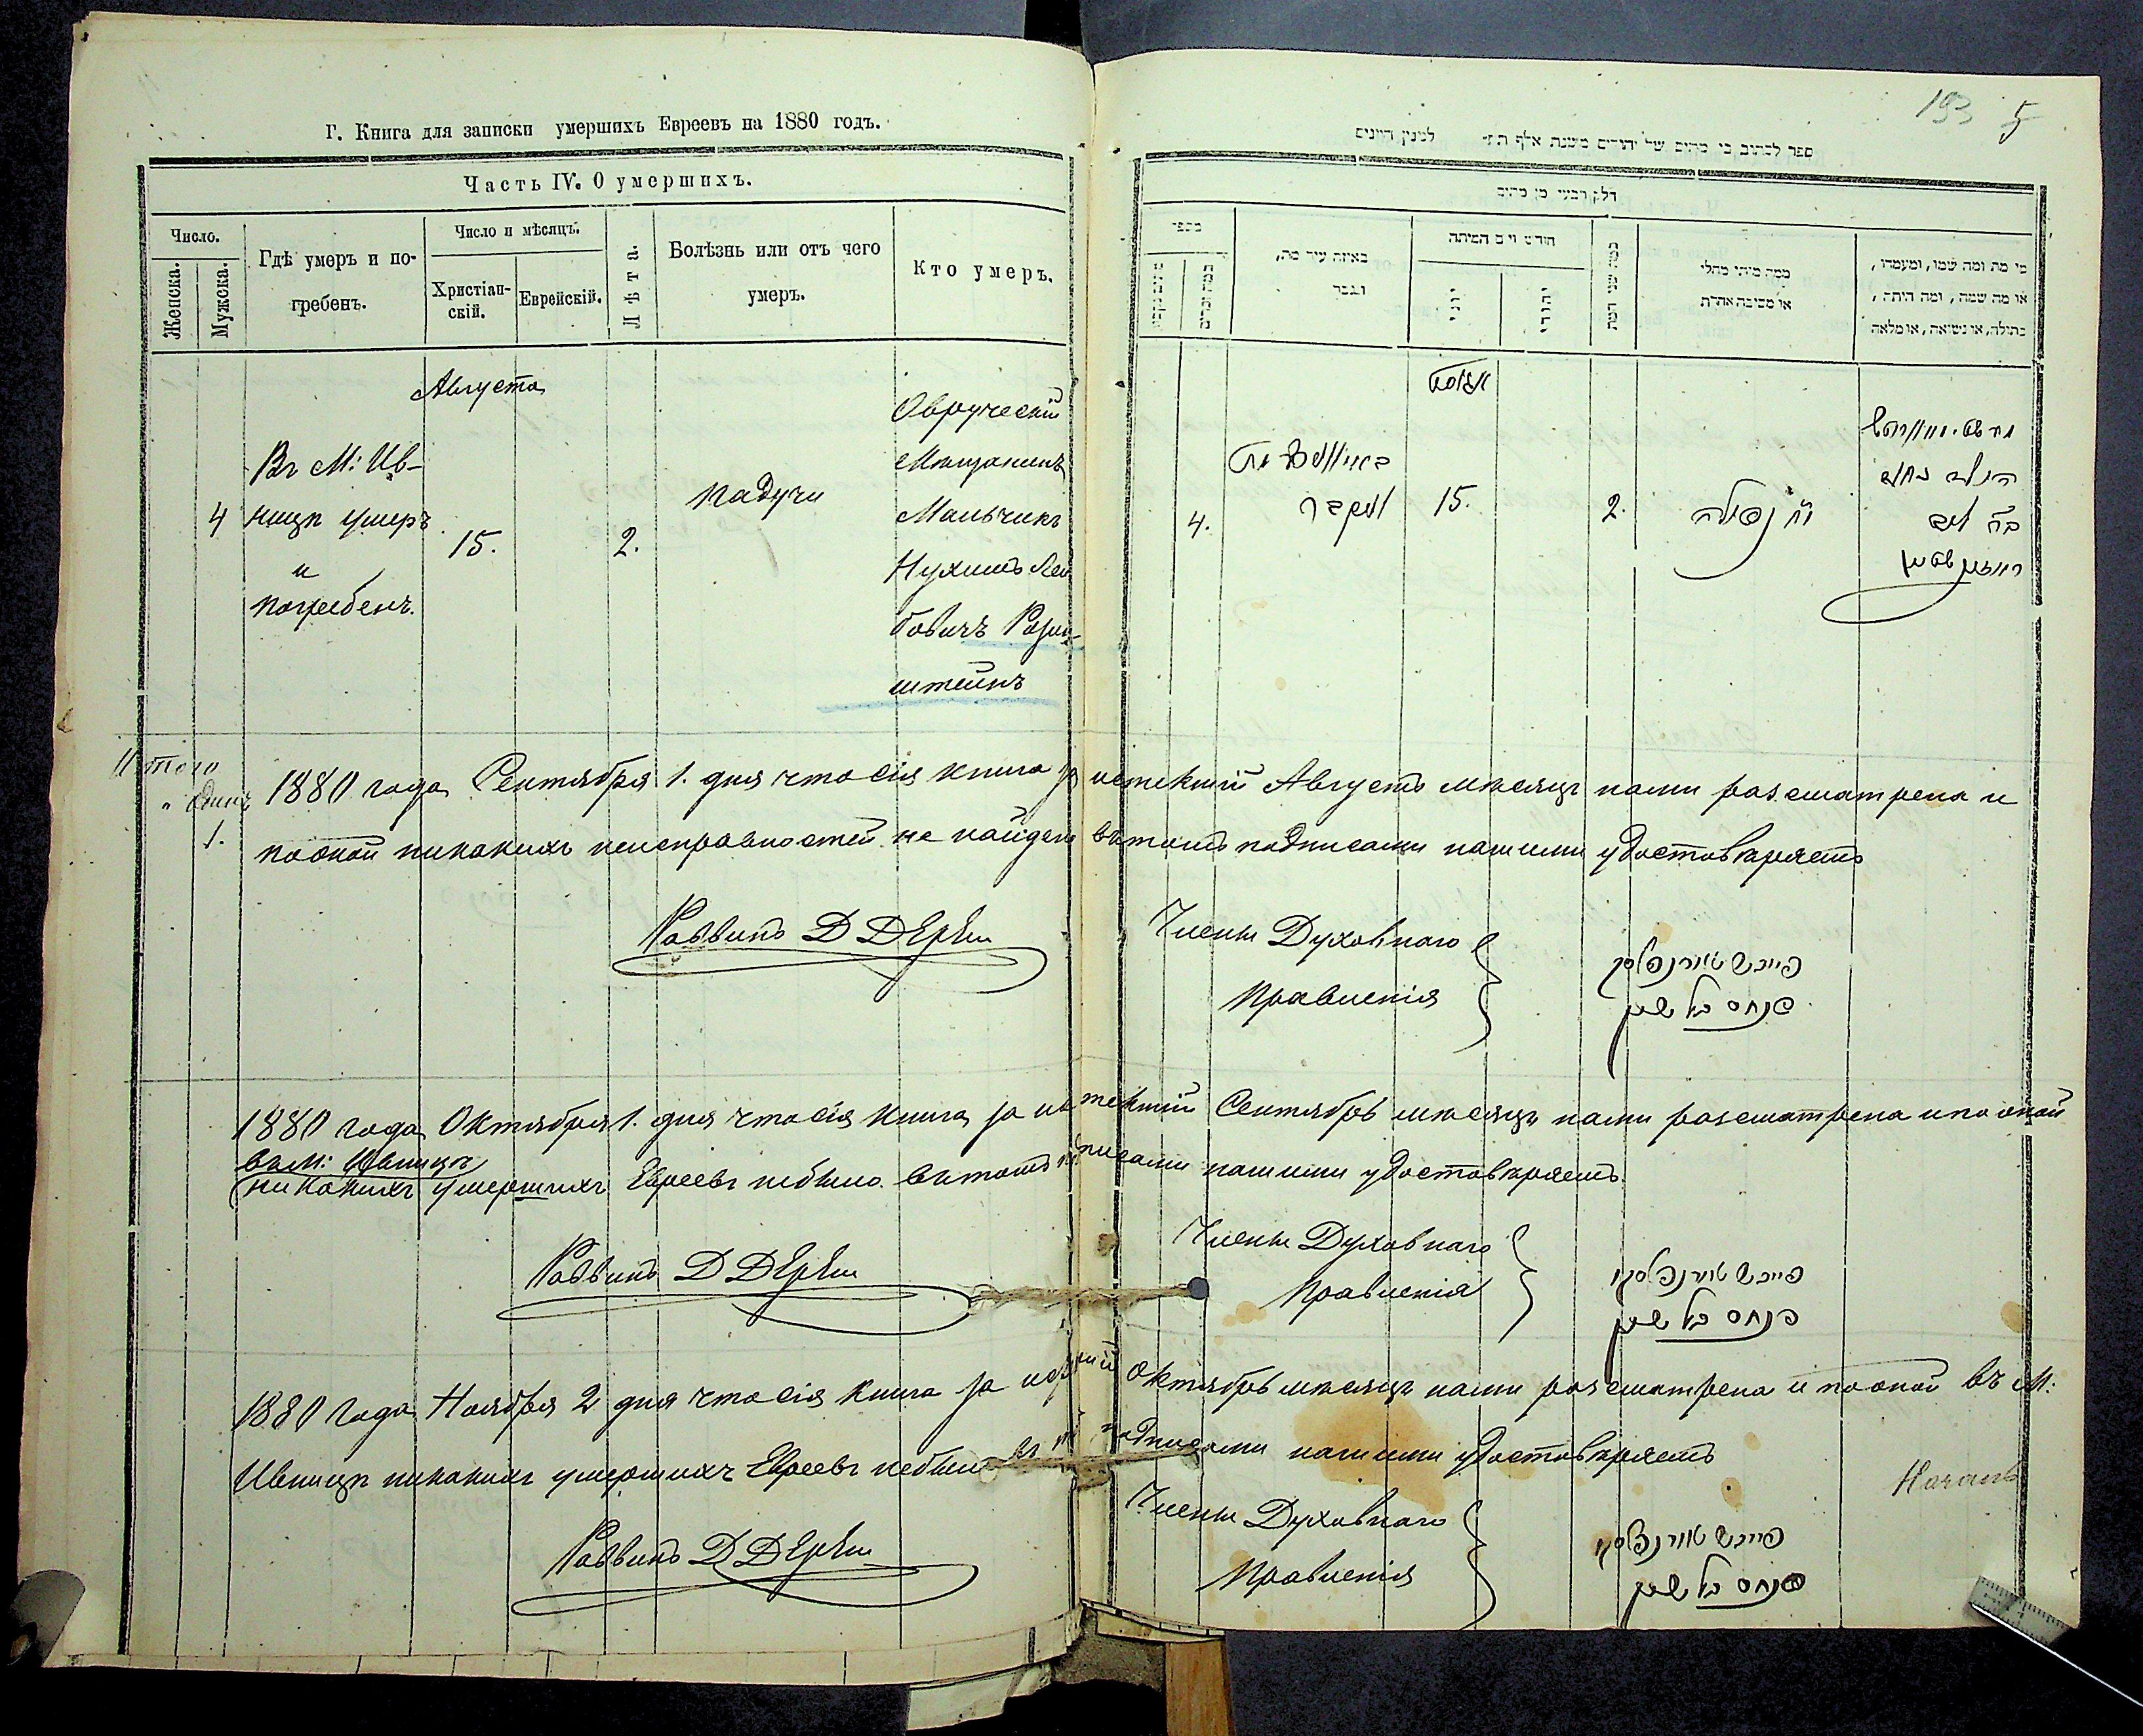 Г. Книга для записки умершихъ Евреевъ на 1880 годъ.
Часть IV. О умершихъ.
Число.
Женска.
Мужска.
Гдѣ умеръ и по-
гребенъ.
Число и мѣсяцъ.
Христіан-
скій.
Еврейскій.
Лѣта.
Болѣзнь или отъ чего
умеръ.
Кто умеръ.
Августа
4
Въ М: Ив-
ницѣ умеръ
и
погребенъ.
15.
2.
падучи
Овруческій
Мѣщанинъ
Мальчикъ
Нухимъ Лей
бовичъ Розин-
штейнъ
Итого
" одинъ
1.
193 5
ספר לכתוב בו מתים של יהודים משנת אלף תת״ למנין היונים
חלק רביעי מן מתים
מספר
באיזה עיר מת,
ונקבר
חודש ויום המיתה
יוני
יהודי
כמה שני המת
ממה מיתי מחלי
או מסיבה אחרת
מי מת ומה שמו, ומעמדו,
או מה שמה, ומה היתה,
בתולה, או נשואה, או מלאה
אוגוסט
4.
ונקבר
15.
2.
נפילה
הילד נחום
ב״ר ליב
ראזינשטיין
1880 года Сентября 1. дня что сія книга за истекшій Августъ мѣсяцъ нами разсматрена и
по оной никакихъ неисправностей не найдено въ томъ подписами нашими удостовѣряемъ
Раввинъ Д
Члены Духовнаго
Правленія
פנחס
1880 года Октября 1. дня что сія книга за истекшій Сентябрь мѣсяцъ нами разсматрена и по оной
въ М: Ивницѣ
никакихъ умершихъ Евреевъ небыло въ томъ подписами нашими удостовѣряемъ.
Раввинъ Д
Члены Духовнаго
Правленія
פנחס
1880 года Ноября 2 дня что сія книга за истекшій Октябрь мѣсяцъ нами разсматрена и по оной въ М:
Ивницѣ никакихъ умершихъ Евреевъ небыло въ томъ подписами нашими удостовѣряемъ
Раввинъ Д
Члены Духовнаго
Правленія
פנחס